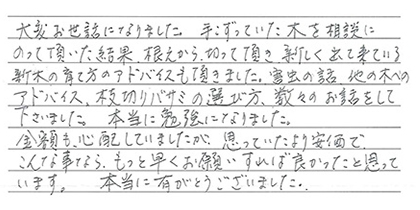 大変お世話になりました。手こずっていた木を相談に
のって頂いた結果、根元から切って頂き新しく出て来ている
新木の育て方のアドバイスも頂きました。害虫の話、他の木への
アドバイス、枝切りバサミの選び方、数々のお話をして
下さいました。本当に勉強になりました。
金額も心配していましたが、思っていたより安価で
こんな事なら、もっと早くお願いすれば良かったと思って
います。 本当に有がとうございました。